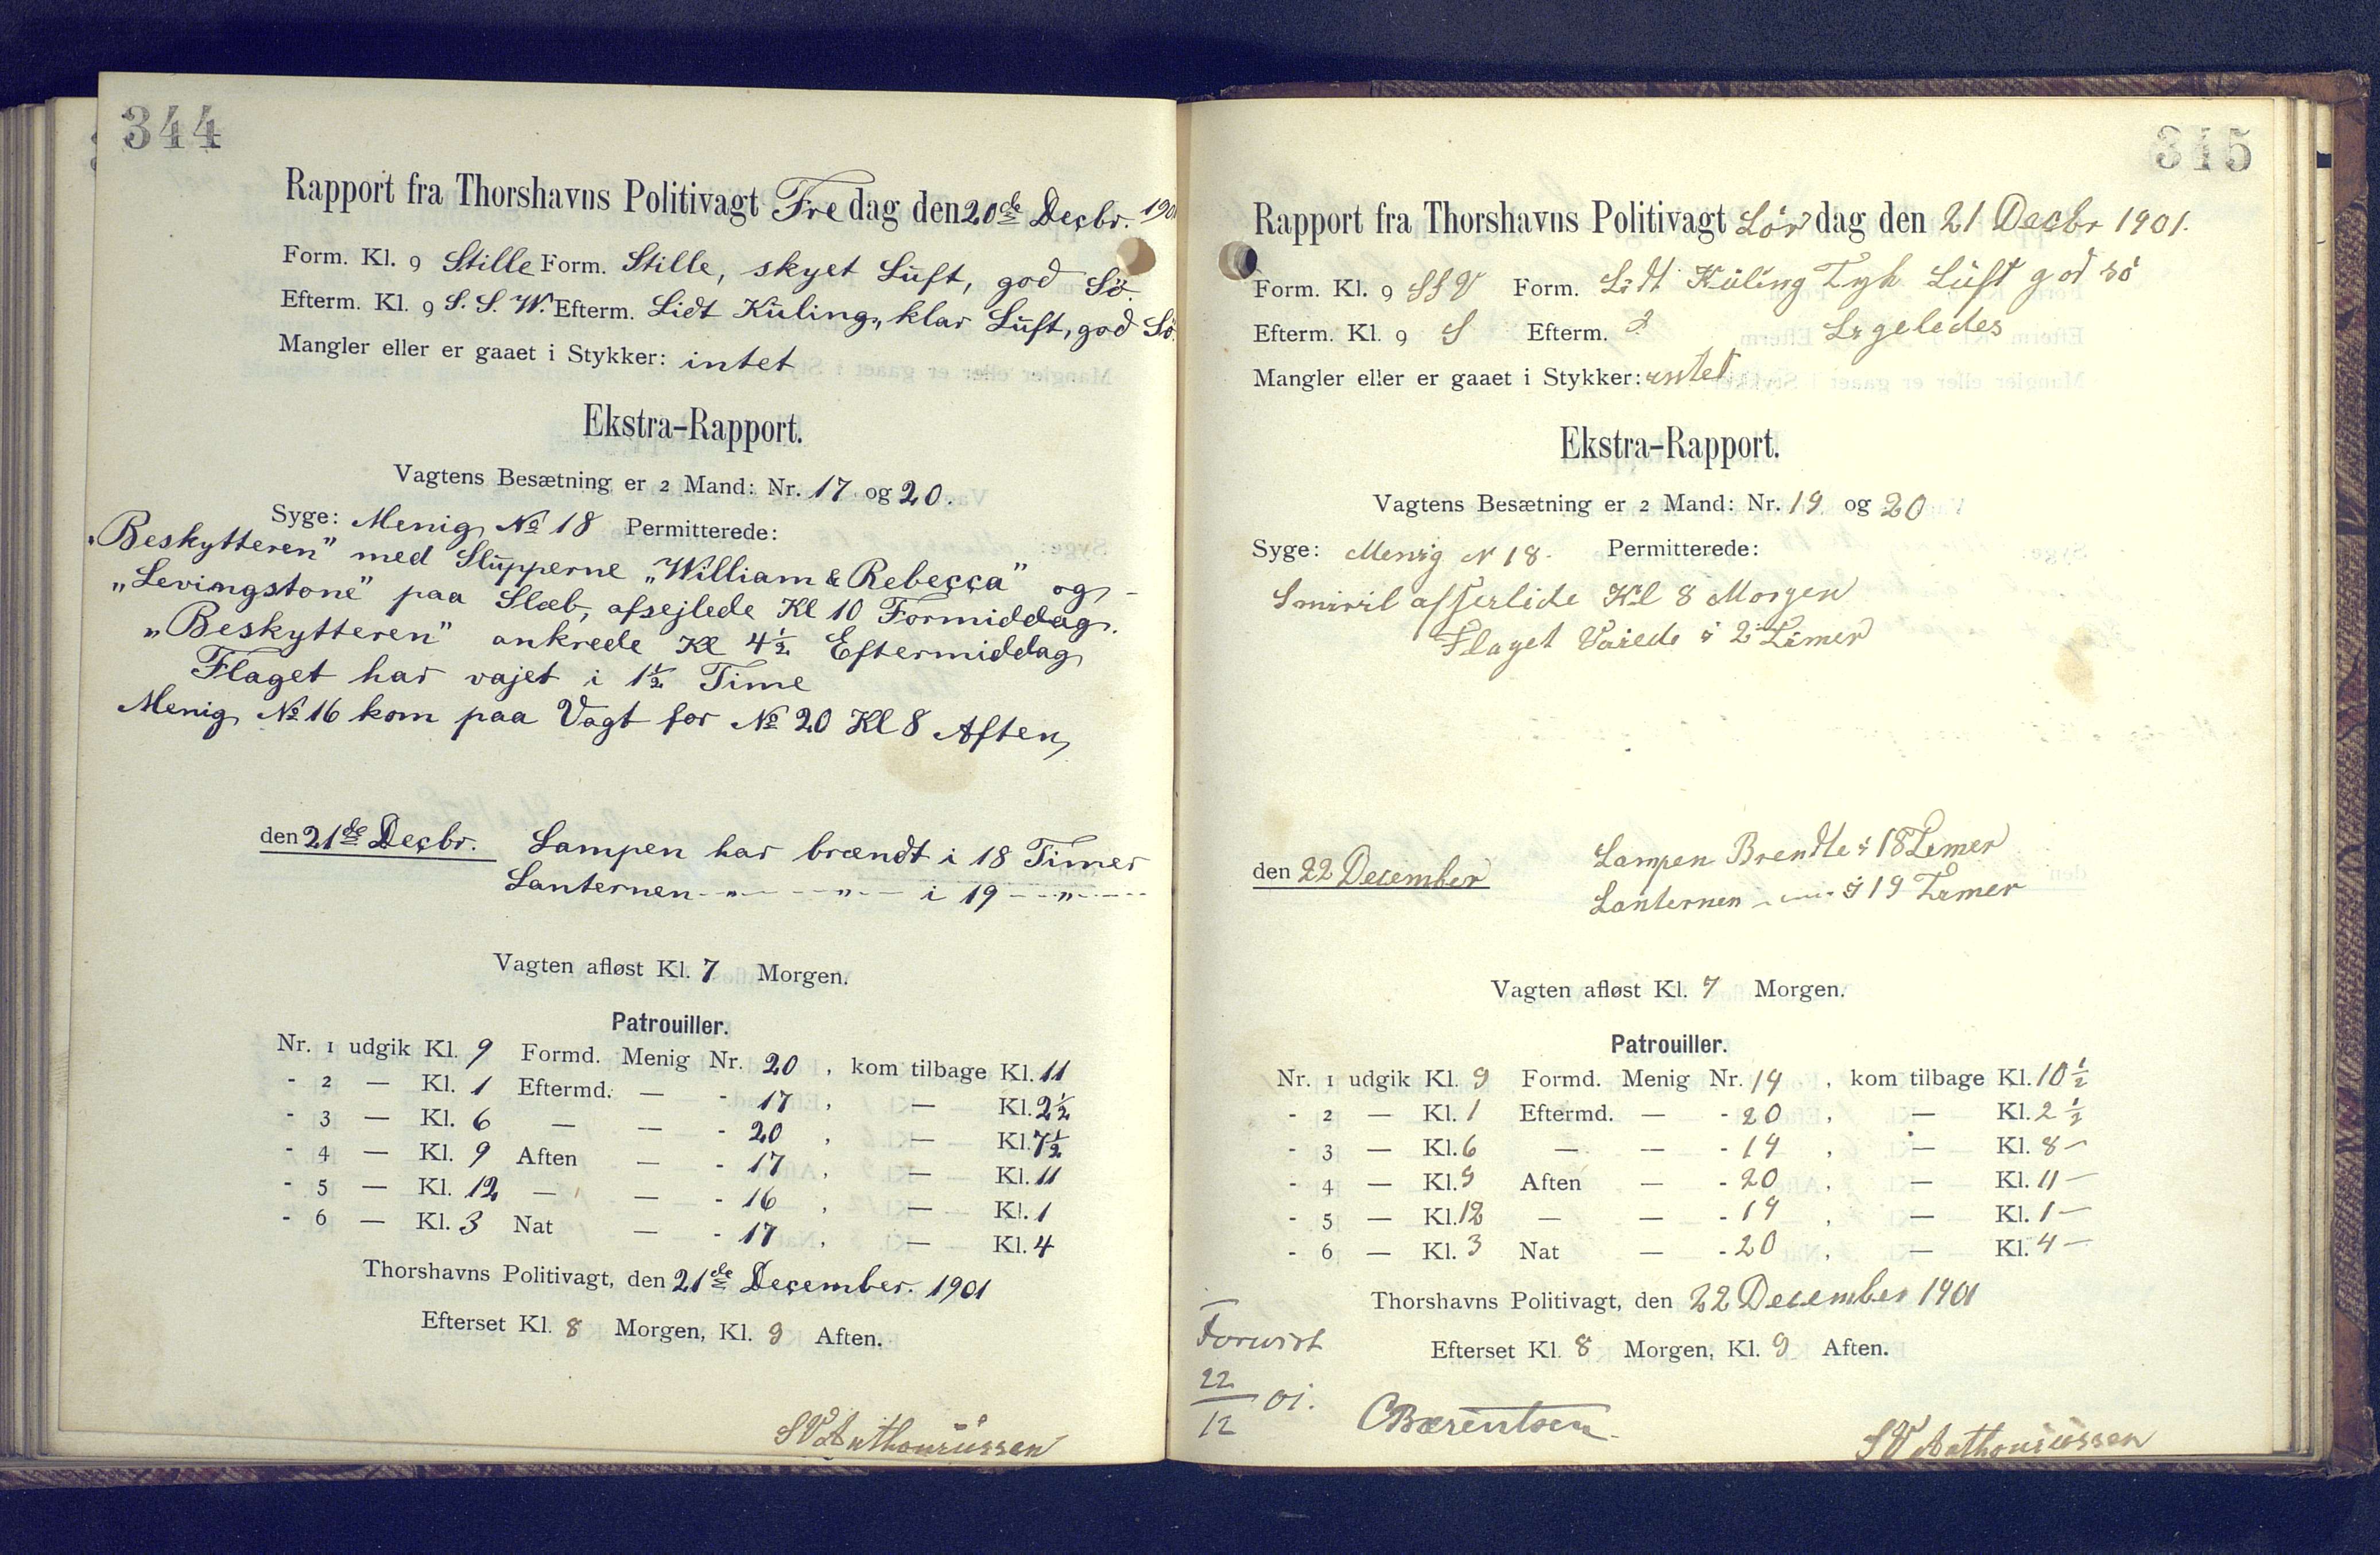 344
Rapport fra Thorshavns Politivagt Fredag den 20de Decbr. 1901
Form. Kl. 9 Stille Form. Stille, skyet Luft, god Sö.
Efterm. Kl. 9 S. S. W. Efterm. Lidt Kuling, klar Luft, god Sö.
Mangler eller er gaaet i Stykker: intet
Ekstra-Rapport.
Vagtens Besætning er 2 Mand: Nr. 17 og 20.
Syge: Menig No 18 Permitterede:
„Beskytteren" med Slupperne „William & Rebecca" og
„Levingstone" paa Slæb, afsejlede Kl 10 Formiddag.
„Beskytteren" ankrede Kl 4½ Eftermiddag
Flaget har vajet i 1½ Time
Menig No 16 kom paa Vagt for No 20 Kl 8 Aften
den 21de Decbr. Lampen har brændt i 18 Timer
Lanternen - " - - " - i 19 - " -
Vagten afløst Kl. 7 Morgen.
Patrouiller.
Nr. 1 udgik Kl. 9 Formd. Menig Nr. 20 , kom tilbage Kl. 11
- 2 — Kl. 1 Eftermd. — - 17 , — Kl. 2½
- 3 — Kl. 6 — — - 20 , — Kl. 7½
- 4 — Kl. 9 Aften — - 17 , — Kl. 11
- 5 — Kl. 12 — — - 16 , — Kl. 1
- 6 — Kl. 3 Nat — - 17 , — Kl. 4
Thorshavns Politivagt, den 21de December. 1901
Efterset Kl. 8 Morgen, Kl. 9 Aften.
SV Anthoniussen
345
Rapport fra Thorshavns Politivagt Lördag den 21 Decbr 1901.
Form. Kl. 9 SSV Form. Lidt Küling Tyk Luft god sö
Efterm. Kl. 9 S Efterm. Ligeledes
Mangler eller er gaaet i Stykker: intet
Ekstra-Rapport.
Vagtens Besætning er 2 Mand: Nr. 19 og 20
Syge: Menig N 18. Permitterede:
Smiril afsejlide Kl 8 Morgen
Flaget Vaiede i 2 Timer
den 22 December Lampen Brendte i 18 Timer
Lanternen - " - i 19 Timer
Vagten afløst Kl. 7 Morgen.
Patrouiller.
Nr. 1 udgik Kl. 9 Formd. Menig Nr. 19 , kom tilbage Kl. 10½
- 2 — Kl. 1 Eftermd. — - 20 , — Kl. 2½
- 3 — Kl. 6 — — - 19 , — Kl. 8 -
- 4 — Kl. 9 Aften — - 20 , — Kl. 11 -
- 5 — Kl. 12 — — - 19 , — Kl. 1 -
- 6 — Kl. 3 Nat — - 20 , — Kl. 4 -
Thorshavns Politivagt, den 22 December 1901
Efterset Kl. 8 Morgen, Kl. 9 Aften.
Forevist
22/12 01.
CBærentsen
SV Anthoniussen